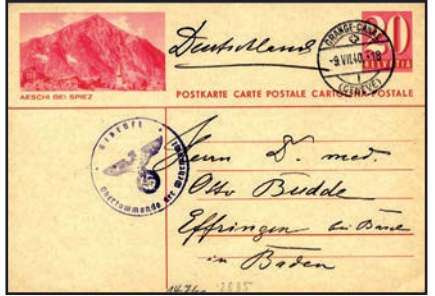 Deutschland
20
HELVETIA
GRANGE-CANAL
-9.VII.40.-18
(GENÈVE)
AESCHI BEI SPIEZ
POSTKARTE CARTE POSTALE CARTOLINA POSTALE
Geprüft
Oberkommando der Wehrmacht
Herrn D. med.
Otto Budde
Effringen bei Basel
in Baden
2885